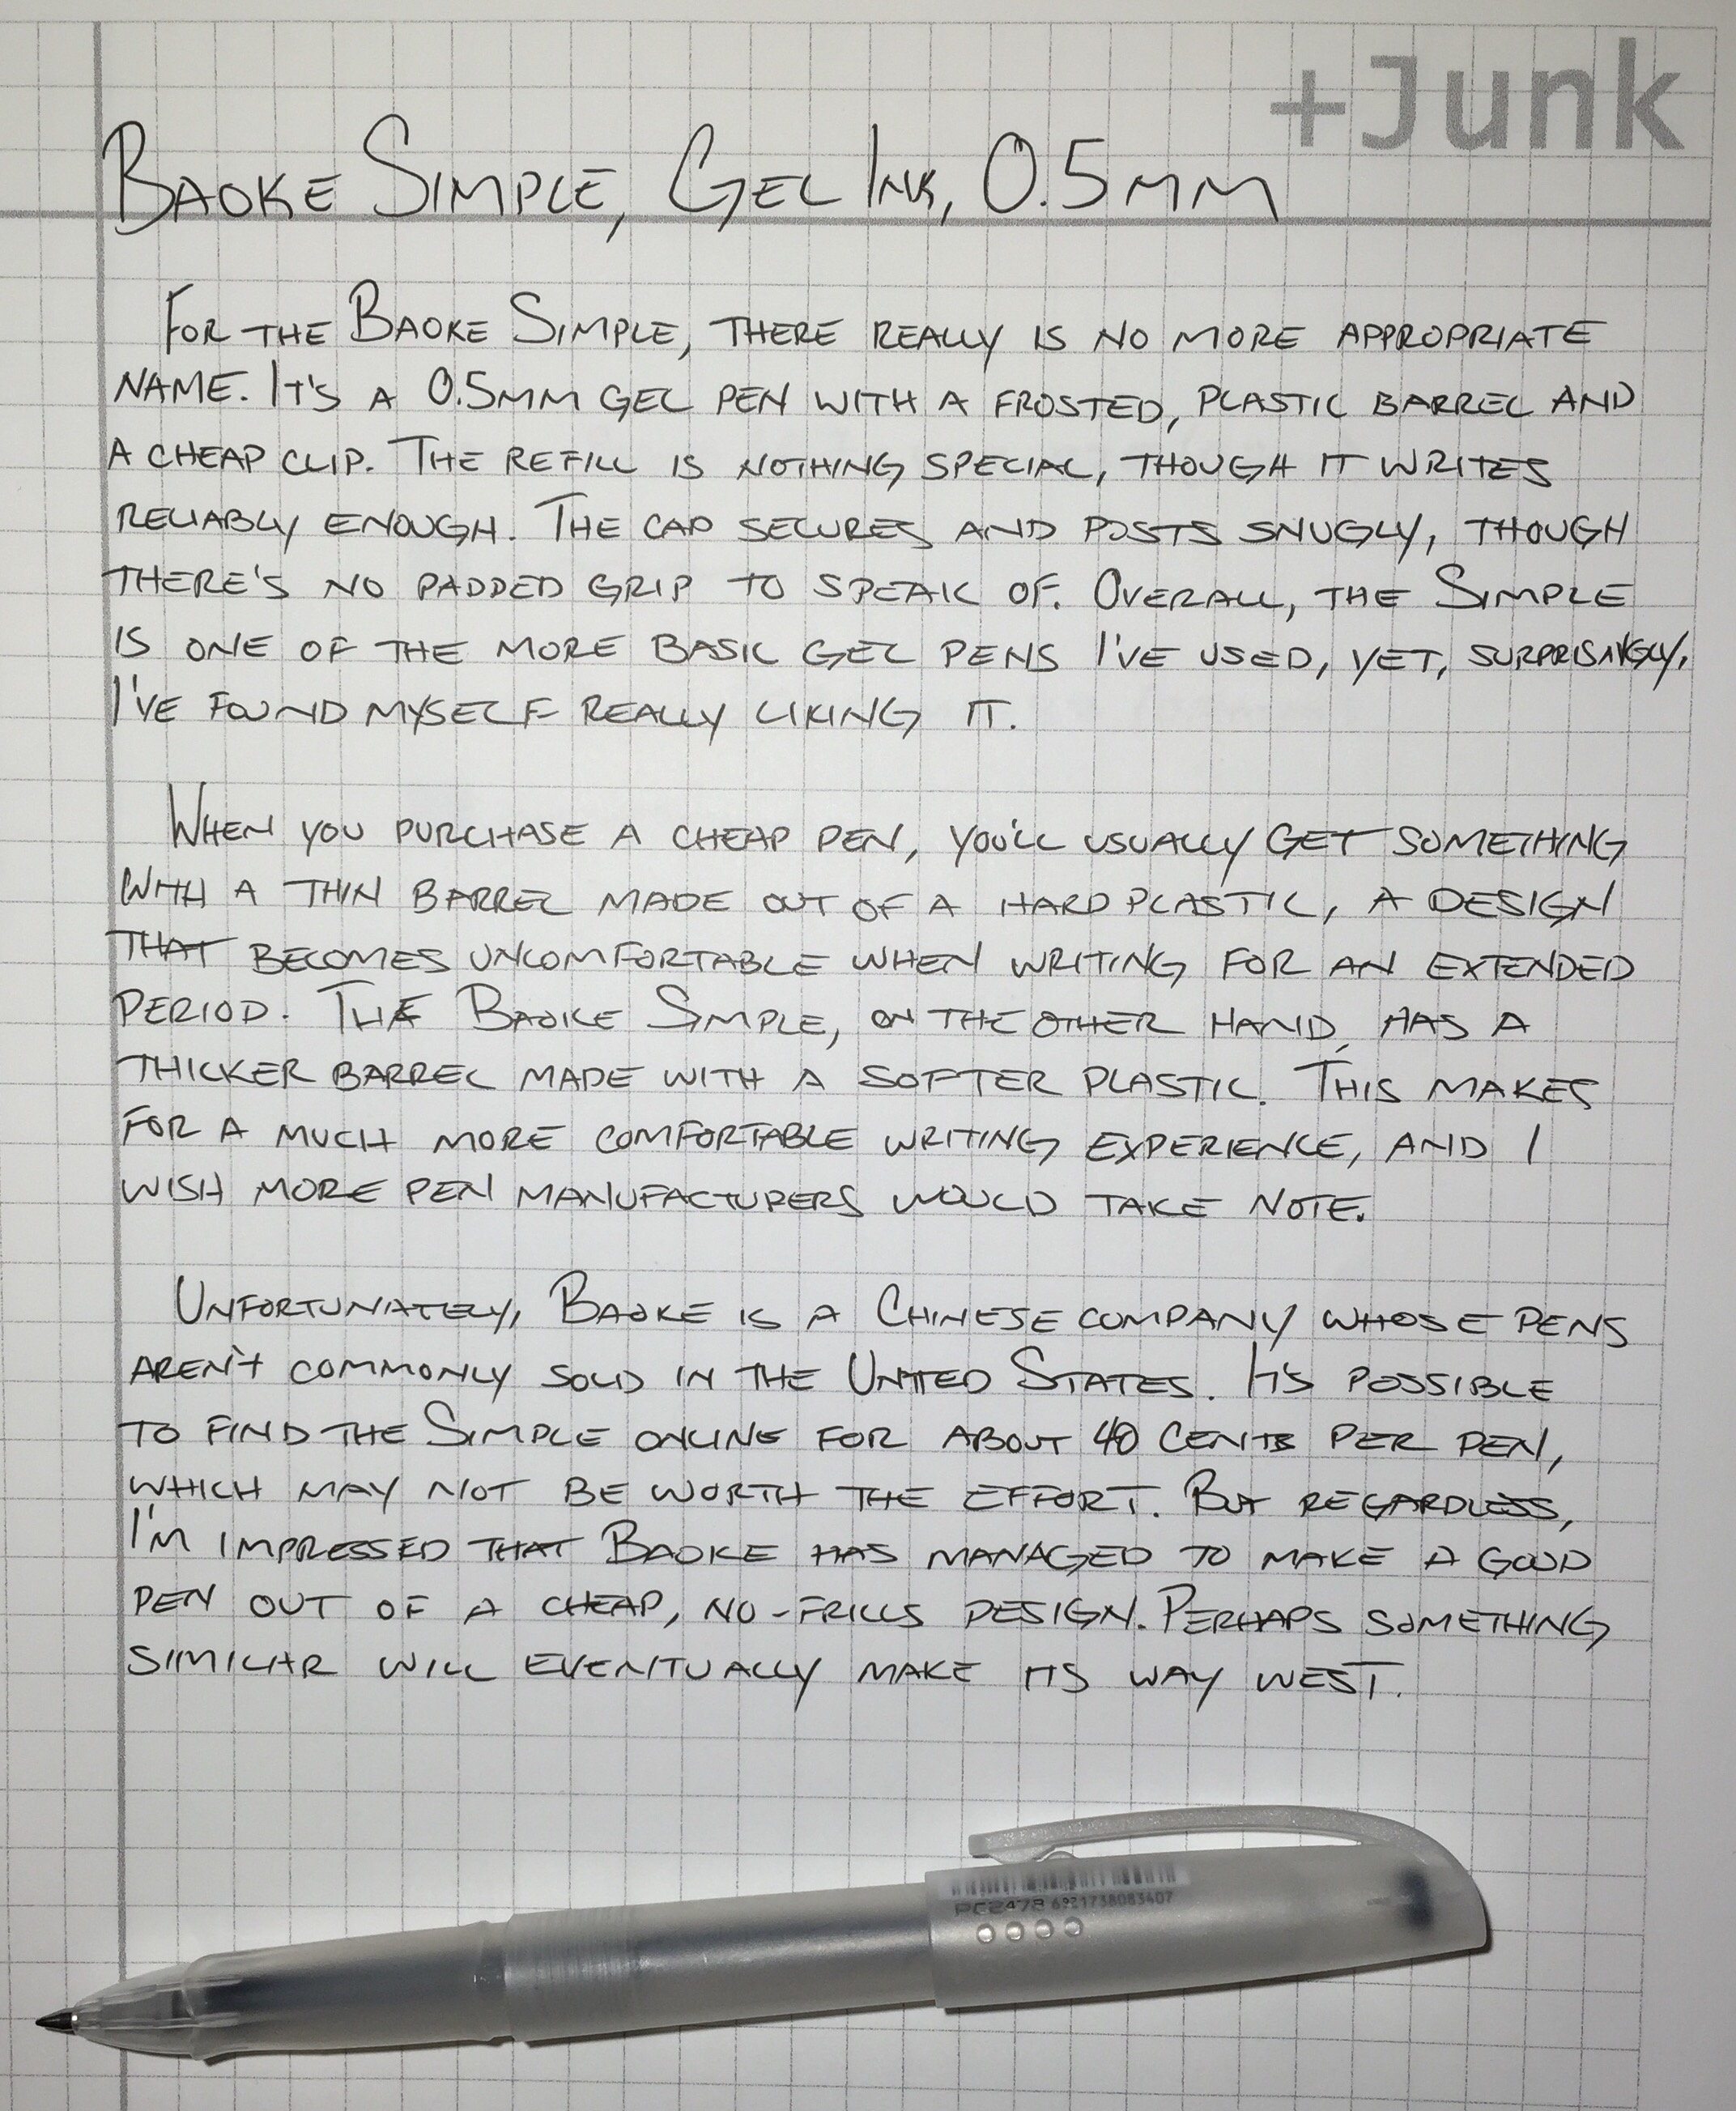 +Junk
Baoke Simple, Gel Ink, 0.5mm
For the Baoke Simple, there really is no more appropriate
name. It's a 0.5mm gel pen with a frosted, plastic barrel and
a cheap clip. The refill is nothing special, though it writes
reliably enough. The cap secures and posts snugly, though
there's no padded grip to speak of. Overall, the Simple
is one of the more basic gel pens I've used, yet, surprisingly,
I've found myself really liking it.
When you purchase a cheap pen, you'll usually get something
with a thin barrel made out of a hard plastic, a design
that becomes uncomfortable when writing for an extended
period. The Baoke Simple, on the other hand, has a
thicker barrel made with a softer plastic. This makes
for a much more comfortable writing experience, and I
wish more pen manufacturers would take note.
Unfortunately, Baoke is a Chinese company whose pens
aren't commonly sold in the United States. It's possible
to find the Simple online for about 40 cents per pen,
which may not be worth the effort. But regardless,
I'm impressed that Baoke has managed to make a good
pen out of a cheap, no-frills design. Perhaps something
similar will eventually make its way west.
PC2478 6921738083407